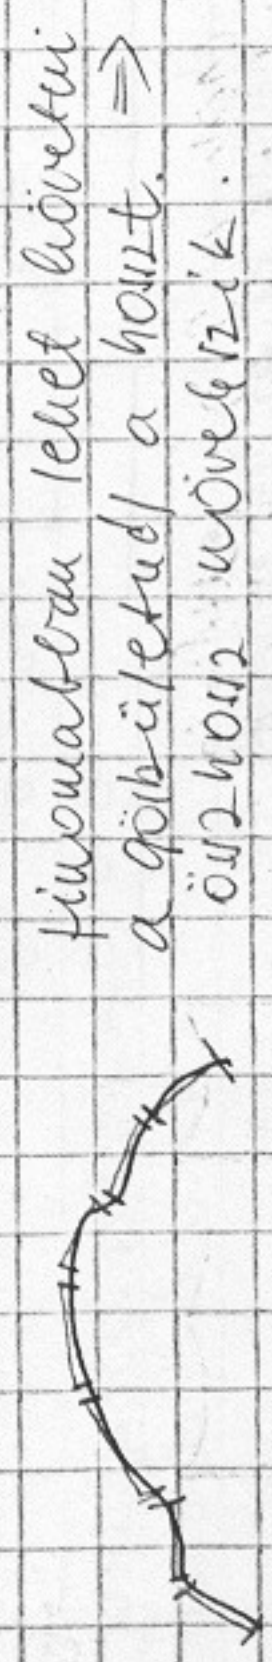 finomabban lehet követni
a görbületnél a hosszt. ⇒
összhossz növekszik.